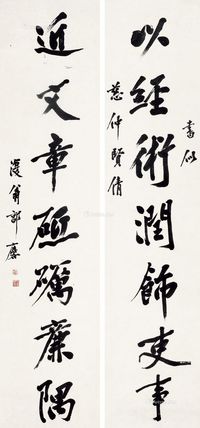 以經術潤飾吏事
近文章砥礪廉隅
書似
慈仲賢倩
漫翁郭麐